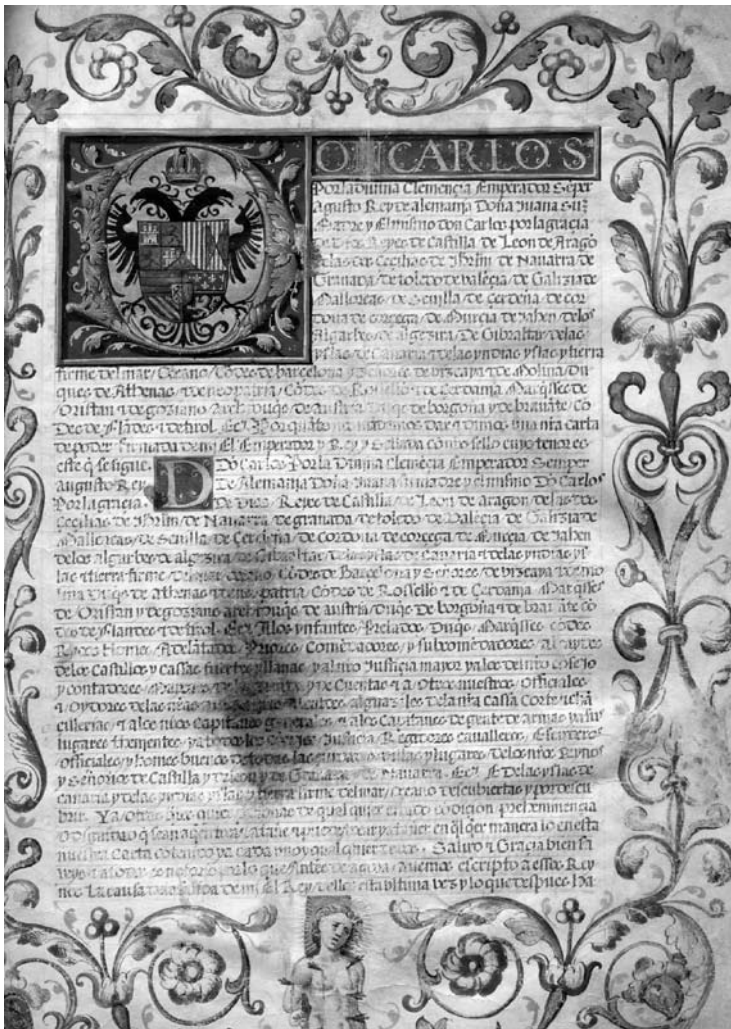 ON CARLOS
Por la Divina Clemençia Emperador Sēper
Agusto Rey de alemanja Doña Juana su
Madre y El mismo don Carlos por la graçia
de Dios Reyes de Castilla de Leon de Aragō
delas dos Çeçilias de Jhrl̄m de Navarra de
Granada de toledo de balēçia de Galizia de
Mallorcas de Sevilla de Cerdeña de cor
dova de corçega de Murcia de Jahen delos
Algarbes de algezira De Gibraltar delas
yslas de Canaria ⁊ delas yndias yslas y tierra
firme del mar Oçeano Cōdes de barcelona y Señores de vizcaya ⁊ de Molina Du
ques de Athenas ⁊ de neopatria Cōdes de Rosello ⁊ de Cerdania Marq̄ses de
Oristan ⁊ de goziano archiduq̄s de austria Duq̄s de borgoña y de bravāte Cō
Des de Flādes ⁊ de tirol Etc̄ Por quāto mandamos Dar ⁊ Dimos una nr̄a carta
de poder firmada de mj El Emperador y Rey y Sellada cō nr̄o sello cuyo tenor es
este q̄ se sigue. DŌ Carlos Por la Divina Clemēçia Emperador Semper
augusto Rey De Alemanja Doña Juana su madre y el mismo Dō Carlos
Por la graçia De Dios Reyes de Castilla de Leon de aragon delas dos
Çeçilias de Jhrl̄m de Navarra de granada de toledo de Valēçia de Galizia de
Mallorcas de Sevilla de Cerdeña de cordova de corçega de Murçia de Jahen
delos algarbes de algezira de Gibraltar delas yslas de Canaria ⁊ delas yndias ys
las ⁊ tierra firme del mar oçeano Cōdes de Barçelona y Señores de vizcaya ⁊ de mo
lina Duq̄s de athenas ⁊ de neopatria Cōdes de Rosello ⁊ de Cerdania Marq̄ses
de Oristan y de goziano archiduq̄s de austria Duq̄s de borgoña ⁊ de bravāte cō
des de flandes ⁊ de tirol Etc̄ Illos ynfantes Prelados Duq̄s Marq̄ses cōdes
Ricos Homes Adelātados Priores Comēdadores y subcomēdadores alcaydes
delos Castillos y Cassas fuertes y llanas y al nr̄o Justiçia mayor y a los del nr̄o cōsejo
y contadores Mayores de y de Cuentas ⁊ a Otros nuestros Offiçiales
⁊ Oydores delas nr̄as audiençias Alcaldes alguaziles dela nr̄a Cassa Corte ⁊ chā
çillerias ⁊ a los nr̄os Capitanes generales ⁊ a los Capitanes de gente de armas y a sus
lugares thenientes y a todos los Justiçia Regidores cavalleros Escuderos
offiçiales y homes buenos de todas las çiudades villas y lugares Delos nr̄os Reynos
y Señorios de Castilla y de leon y de Granada de Navarra Etc̄ E delas yslas de
canaria y delas yndias yslas y tierra firme del mar oçeano descubiertas y por descu
brir Y a otras quales quier personas de qual quier estado cōdiçion preheminençia
O dignidad q̄ sean en q̄lq̄er manera lo en esta
nuestra Carta cōtenido y a cada uno y qual quier Salud ⁊ Graçia bien sa
beys ⁊ a todos es notorio por lo que Antes de agora avemos escripto a essos Rey
nos La causa dela de mj el Rey dellos esta ultima vez y lo que despues ha